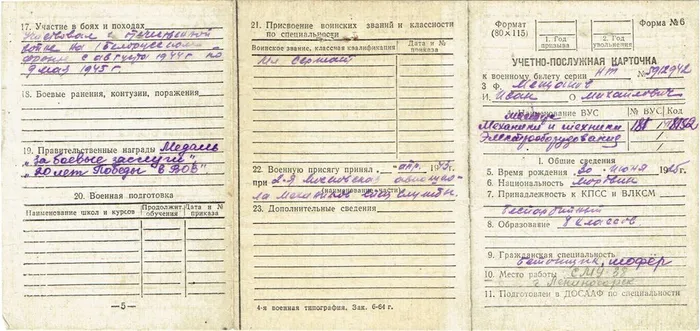 17. Участие в боях и походах
Участвовал в отечественной
войне на 1 Белорусском
фронте с августа 1944г по
9 мая 1945г.
18. Боевые ранения, контузии, поражения
19. Правительственные награды Медаль
„За боевые заслуги"
„20 лет Победы в ВОВ"
20. Военная подготовка
Наименование школ и курсов
Продолжит. обучения
Дата и № приказа
— 5 —
21. Присвоение воинских званий и классности
по специальности
Воинское звание, классная квалификация
Дата и № приказа
Мл сержант
22. Военную присягу принял
при 2-я Московская
(наименование части)
23. Дополнительные сведения
4-я военная типография. Зак. 6-64 г.
Формат
(80×115)
1. Год
призыва
2. Год
увольнения
Форма № 6
УЧЕТНО-ПОСЛУЖНАЯ КАРТОЧКА
к военному билету серии НТ № 5912942
3 Ф.
И. Иван О Михайлович
Наименование ВУС
№ ВУС
Код
механики и техники
электрооборудования
I. Общие сведения
5. Время рождения 20 июня
6. Национальность мордвин
7. Принадлежность к КПСС и ВЛКСМ
беспартийный
8. Образование 8 классов
9. Гражданская специальность
бетонщик, шофёр
10. Место работы СМУ-38
г. Лениногорск
11. Подготовлен в ДОСААФ по специальности